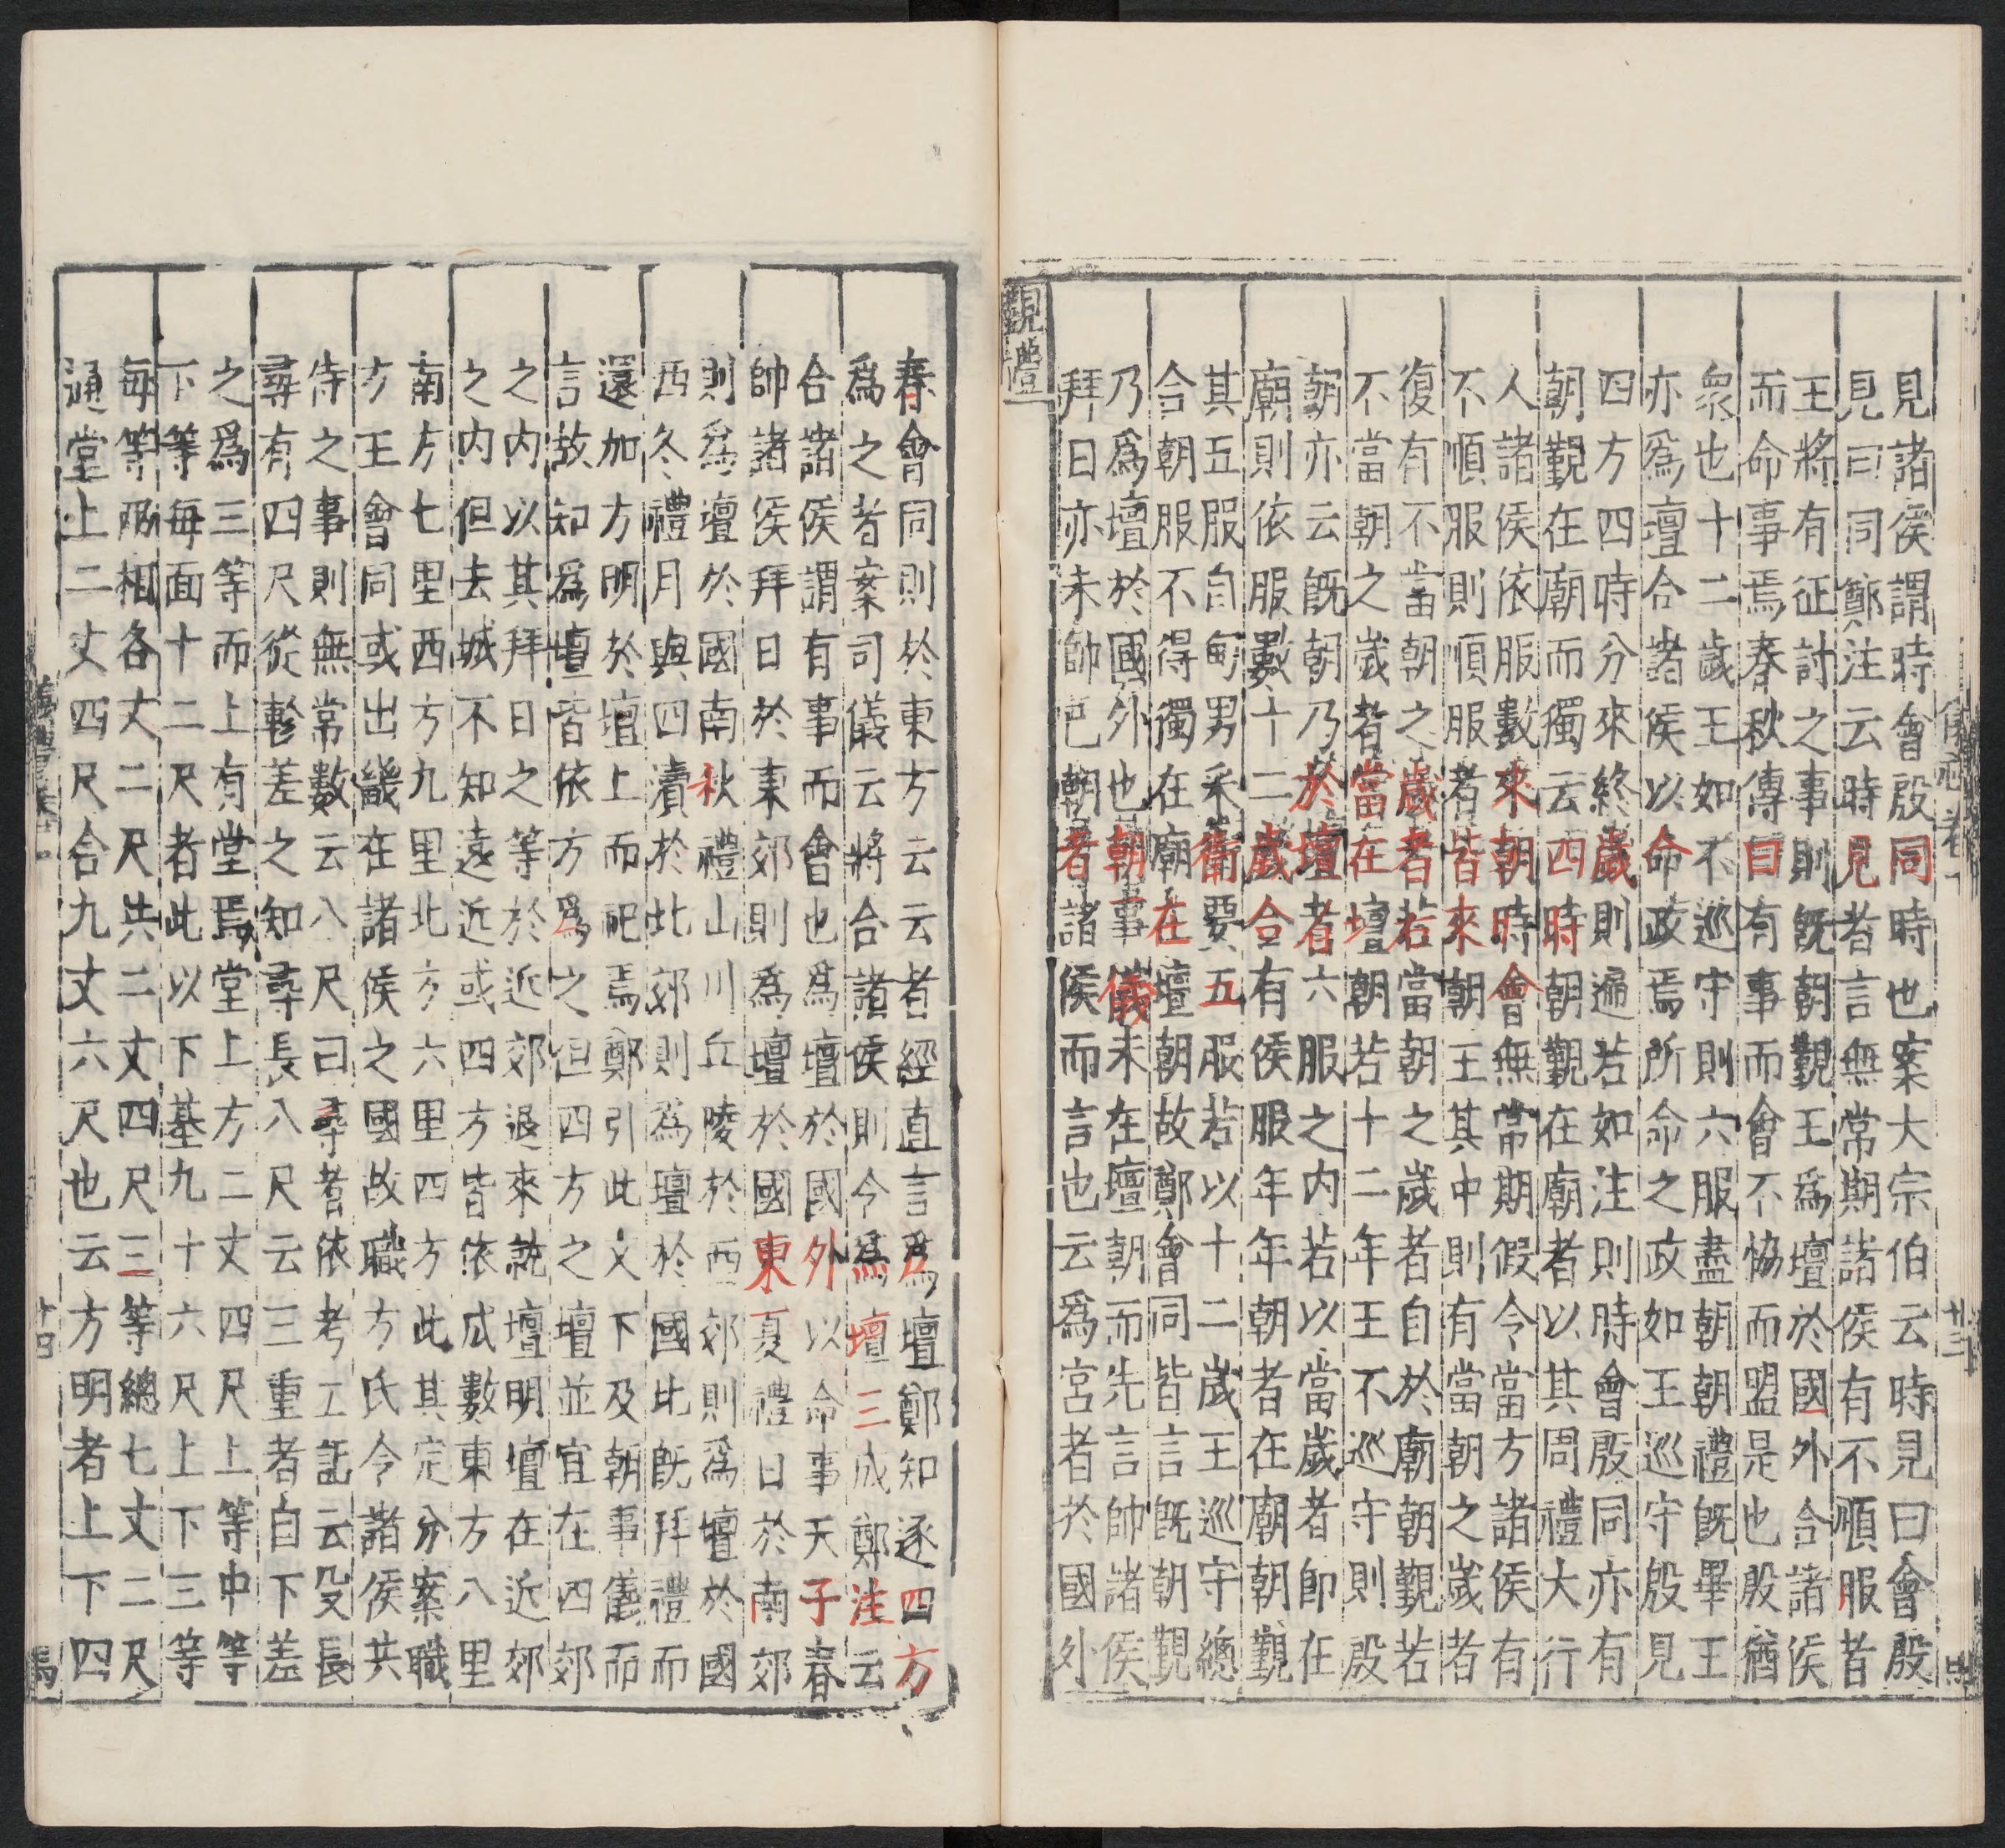 見諸侯謂時會殷同時也案大宗伯云時見曰會殷
見曰同鄭注云時見者言無常期諸侯有不順服者
王將有征討之事則既朝覲王為壇於國外合諸侯
而命事焉春秋傳曰有事而會不協而盟是也殷猶
眾也十二歲王如不巡守則六服盡朝朝禮既畢王
亦為壇合諸侯以命政焉所命之政如王巡守殷見
四方四時分來終歲則遍若如注則時會殷同亦有
朝覲在廟而獨云四時朝覲在廟者以其周禮大行
人諸侯依服數來朝時會無常期假令當方諸侯有
不順服則順服者皆來朝王其中則有當朝之歲者
復有不當朝之歲者若當朝之歲者自於廟朝覲若
不當朝之歲者當在壇朝若十二年王不巡守則殷
朝亦云既朝乃於壇者六服之內若以當歲者即在
廟則依服數十二歲合有侯服年年朝者在廟朝覲
其五服自甸男采衛要五服若以十二歲王巡守總
合朝服不得獨在廟在壇朝故鄭會同皆言既朝覲
乃為壇於國外也朝事儀未在壇朝而先言帥諸侯
拜日亦未帥已朝者諸侯而言也云為宮者於國外
覲禮
春會同則於東方云云者經直言為壇鄭知逐四方
爲之者案司儀云將合諸侯則令為壇三成鄭注云
合諸侯謂有事而會也為壇於國外以命事天子春
帥諸侯拜日於東郊則為壇於國東夏禮日於南郊
則為壇於國南秋禮山川丘陵於西郊則為壇於國
西冬禮月與四瀆於北郊則為壇於國北既拜禮而
還加方明於壇上而祀焉鄭引此文下及朝事儀而
言故知為壇皆依方為之但四方之壇並宜在四郊
之內以其拜日之等於近郊退來就壇明壇在近郊
之內但去城不知遠近或四方皆依成數東方八里
南方七里西方九里北方六里四方此其定分案職
方王會同或出畿在諸侯之國故職方氏令諸侯共
待之事則無常數云八尺曰尋者依考工記云殳長
尋有四尺從軫差之知尋長八尺云三重者自下差
之為三等而上有堂焉堂上方二丈四尺上等中等
下等每面十二尺者此以下基九十六尺上下三等
每等兩相各丈二尺共二丈四尺三等總七丈二尺
通堂上二丈四尺合九丈六尺也云方明者上下四